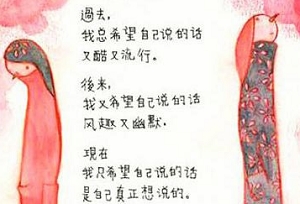 過去,
我总希望自己说的话
又酷又流行。
後来,
我又希望自己说的话
风趣又幽默.
現在
我只希望自己说的话
是自己真正想说的。